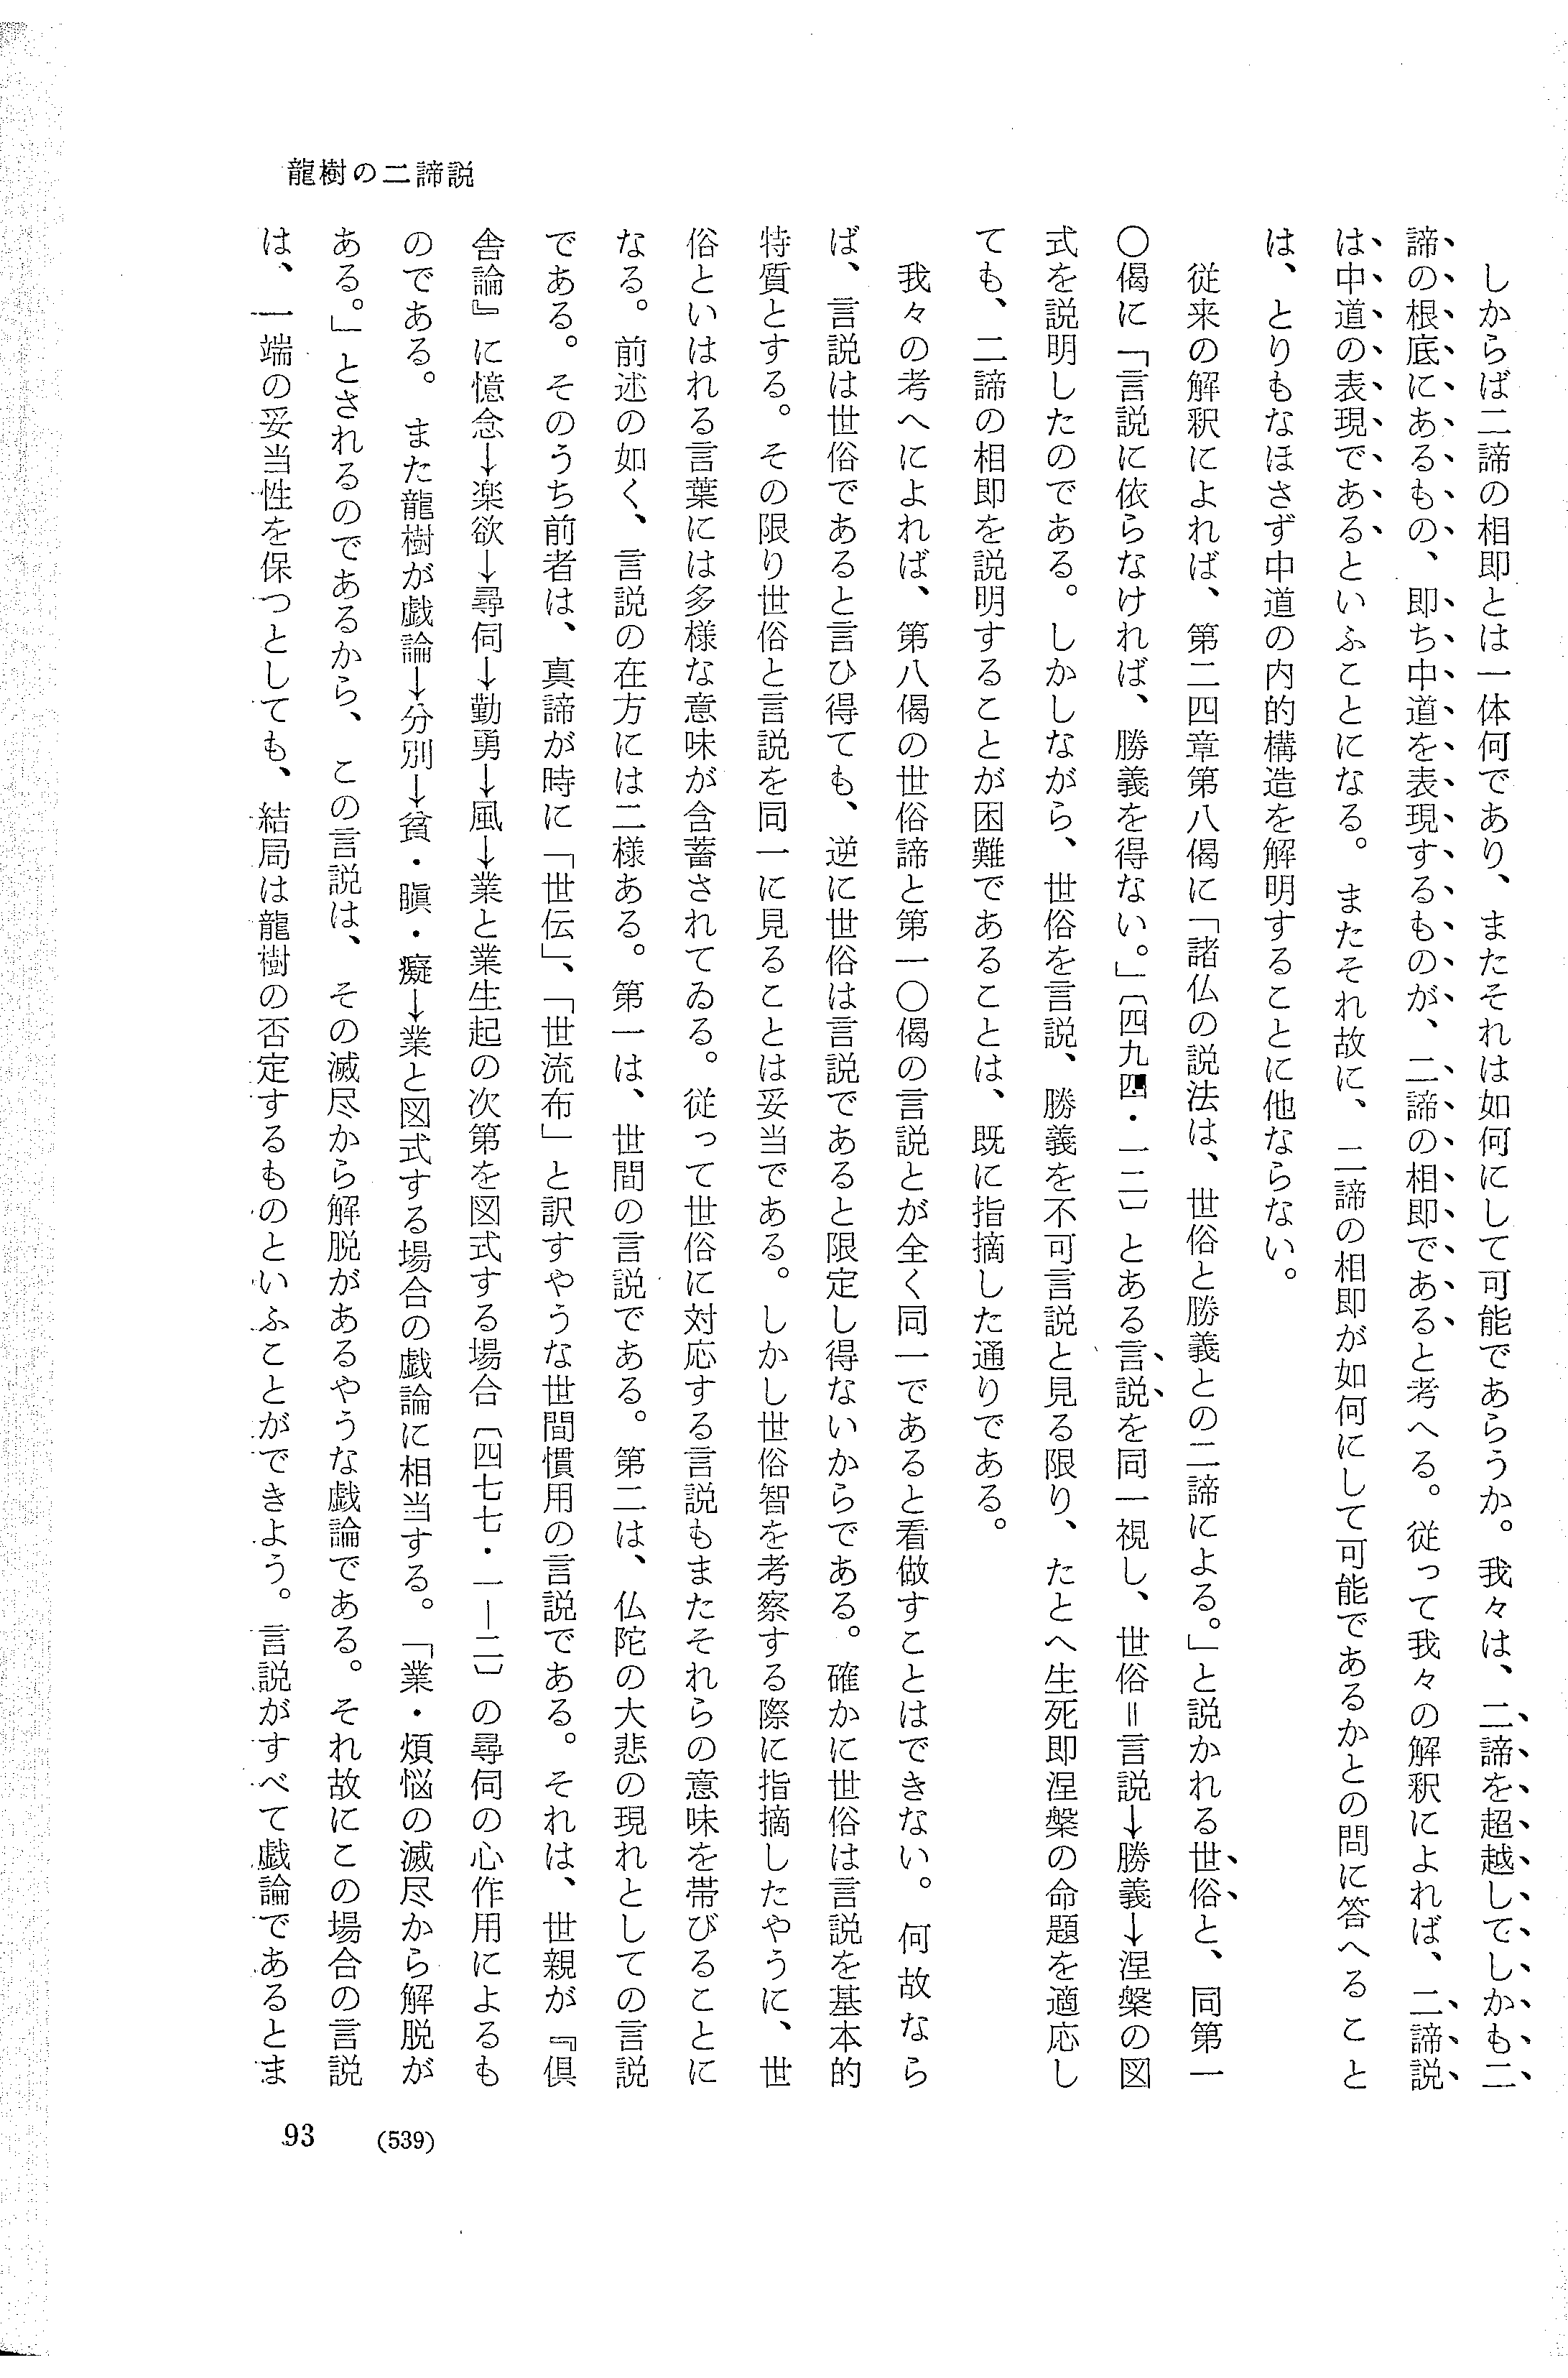 しからば二諦の相即とは一体何であり、またそれは如何にして可能であらうか。我々は、二諦を超越してしかも二
諦の根底にあるもの、即ち中道を表現するものが、二諦の相即であると考へる。従って我々の解釈によれば、二諦説
は中道の表現であるといふことになる。またそれ故に、二諦の相即が如何にして可能であるかとの問に答へること
は、とりもなほさず中道の内的構造を解明することに他ならない。
従来の解釈によれば、第二四章第八偈に「諸仏の説法は、世俗と勝義との二諦による。」と説かれる世俗と、同第一
〇偈に「言説に依らなければ、勝義を得ない。」〔四九四・一二〕とある言説を同一視し、世俗=言説→勝義→涅槃の図
式を説明したのである。しかしながら、世俗を言説、勝義を不可言説と見る限り、たとへ生死即涅槃の命題を適応し
ても、二諦の相即を説明することが困難であることは、既に指摘した通りである。
我々の考へによれば、第八偈の世俗諦と第一〇偈の言説とが全く同一であると看做すことはできない。何故なら
ば、言説は世俗であると言ひ得ても、逆に世俗は言説であると限定し得ないからである。確かに世俗は言説を基本的
特質とする。その限り世俗と言説を同一に見ることは妥当である。しかし世俗智を考察する際に指摘したやうに、世
俗といはれる言葉には多様な意味が含蓄されてゐる。従って世俗に対応する言説もまたそれらの意味を帯びることに
なる。前述の如く、言説の在方には二様ある。第一は、世間の言説である。第二は、仏陀の大悲の現れとしての言説
である。そのうち前者は、真諦が時に「世伝」、「世流布」と訳すやうな世間慣用の言説である。それは、世親が『倶
舎論』に憶念→楽欲→尋伺→勤勇→風→業と業生起の次第を図式する場合〔四七七・一―二〕の尋伺の心作用によるも
のである。また龍樹が戯論→分別→貧・瞋・癡→業と図式する場合の戯論に相当する。「業・煩悩の滅尽から解脱が
ある。」とされるのであるから、この言説は、その滅尽から解脱があるやうな戯論である。それ故にこの場合の言説
は、一端の妥当性を保つとしても、結局は龍樹の否定するものといふことができよう。言説がすべて戯論であるとま
龍樹の二諦説
93
(539)